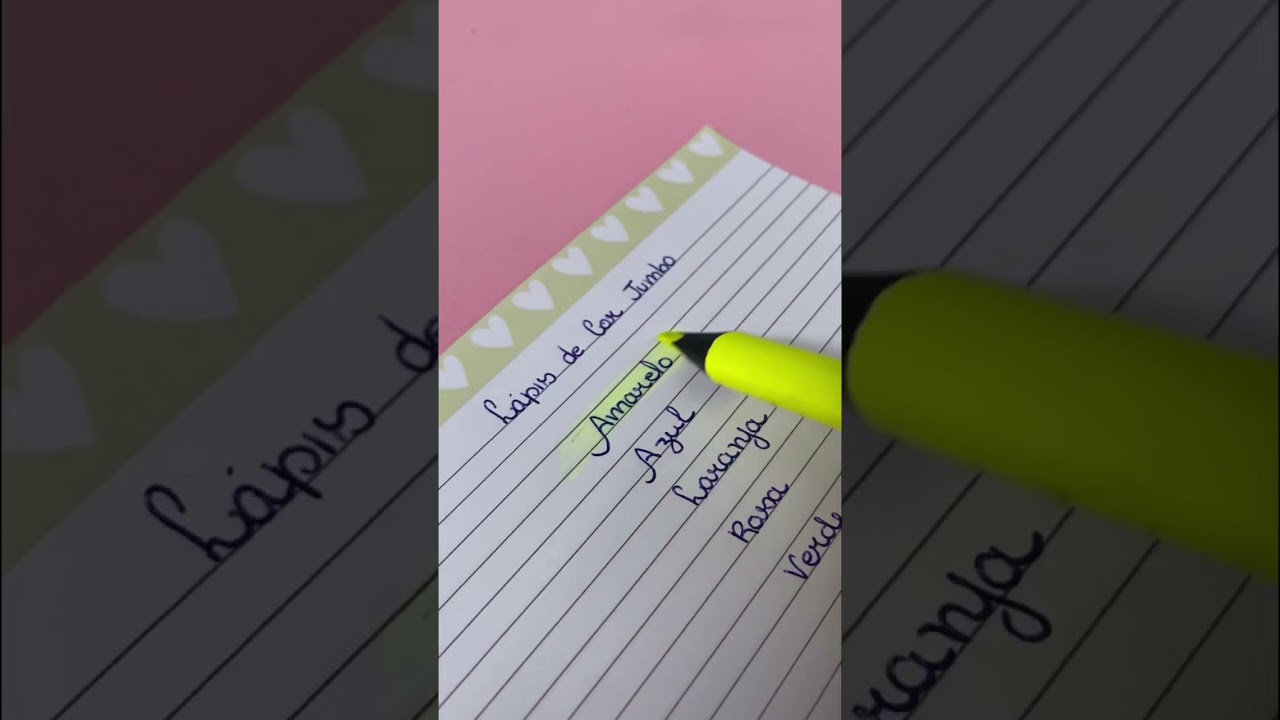 Lápis de Cor Jumbo
Amarelo
Azul
Laranja
Roxa
Verde